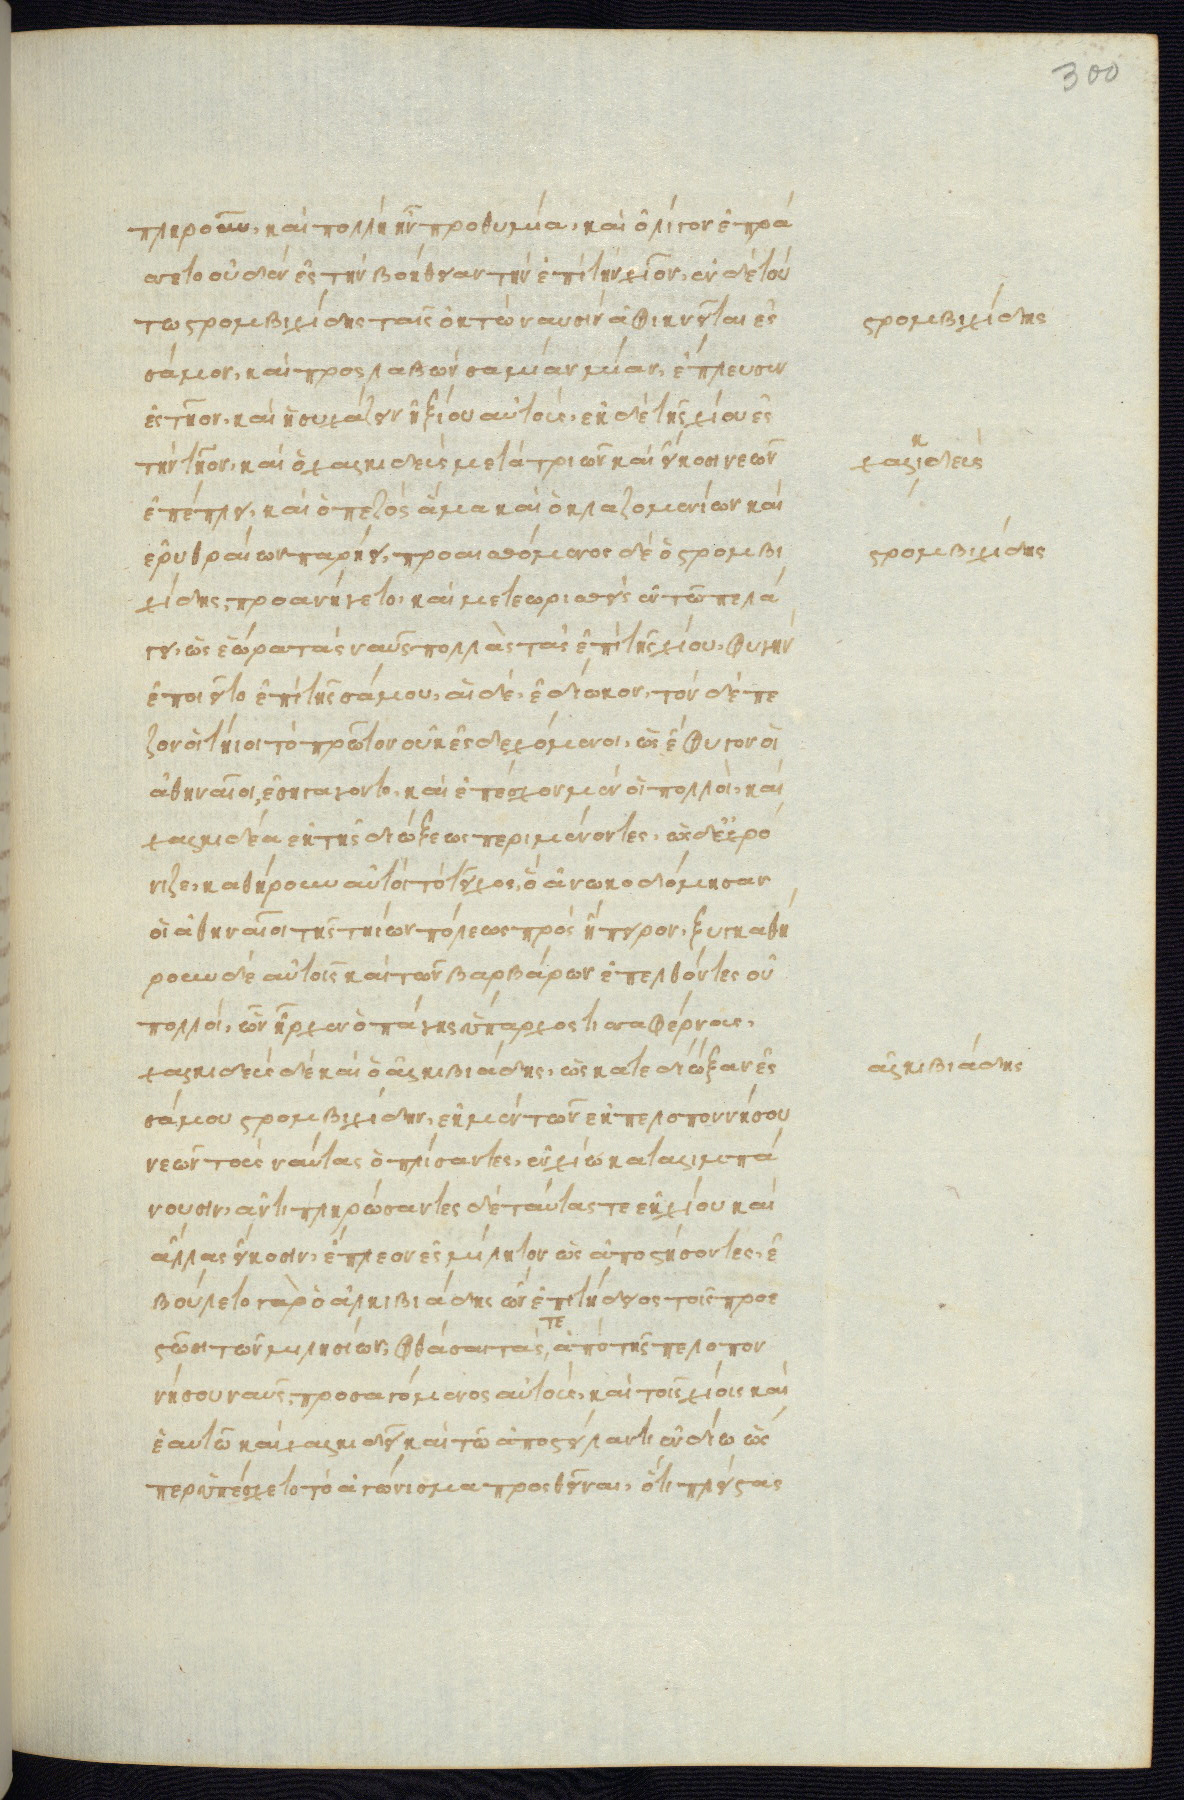 πληροῦν, καὶ πολλὴ ἦν προθυμία, καὶ ὀλίγον ἐπρά
σσετο οὐδὲν ἐς τὴν βοήθειαν τὴν ἐπὶ τὴν χῖον, ἐν δὲ τού
τω στρομβιχίδης ταῖς ὀκτὼ ναυσὶν ἀφικνεῖται ἐς
στρομβιχίδης
σάμον, καὶ προσλαβὼν σαμίαν μίαν, ἔπλευσεν
ἐς τῆον, καὶ ἡσυχάζειν ἠξίου αὐτοὺς, ἐκ δὲ τῆς χίου ἐς
τὴν τῆον, καὶ ὁ χαλκιδεὺς μετὰ τριῶν καὶ εἴκοσι νεῶν
χαλκιδεὺς
ἐπέπλει, καὶ ὁ πεζὸς ἅμα καὶ ὁ κλαζομενίων καὶ
ἐρυθραίων παρήει, προαισθόμενος δὲ ὁ στρομβι
στρομβιχίδης
χίδης, προανήγετο, καὶ μετεωρισθεὶς ἐν τῶ πελά
γει, ὡς ἑώρα τὰς ναῦς πολλὰς τὰς ἐπὶ τῆς χίου, φυγὴν
ἐποιεῖτο ἐπὶ τῆς σάμου, αἱ δὲ, ἐδίωκον, τὸν δὲ πε
ζὸν οἱ τήιοι τὸ πρῶτον οὐκ ἐςδεχόμενοι, ὡς ἔφυγον οἱ
ἀθηναῖοι, ἐσηγαγοντο, καὶ ἐπέσχον μὲν οἱ πολλοὶ, καὶ
χαλκιδέα ἐκ τῆς διώξεως περιμένοντες, ὡς δὲ ἐχρό
νιζε, καθήρουν αὐτοὶ τὸ τεῖχος, ὃ ἀνωκοδόμησαν
οἱ ἀθηναῖοι τῆς τηίων πόλεως πρὸς ἤπειρον, ξυγκαθή
ρουν δὲ αὐτοῖς καὶ τῶν βαρβάρων ἐπελθόντες οὐ
πολλοὶ, ὧν ἦρχεν ὁ πάγης ὕπαρχος τισσαφέρνους,
χαλκιδεὺς δὲ καὶ ὁ ἀλκιβιάδης, ὡς κατεδίωξαν ἐς
ἀλκιβιάδης
σάμου στρομβιχίδην, ἐκ μὲν τῶν ἐκ πελοποννήσου
νεῶν τοὺς ναύτας ὁπλίσαντες, ἐν χίω καταλιμπά
νουσιν, ἀντιπληρώσαντες δὲ ταύτας τε ἐκ χίου καὶ
ἄλλας εἴκοσιν, ἔπλεον ἐς μίλητον ὡς ἀποστήσοντες, ἐ
βούλετο γὰρ ὁ ἀλκιβιάδης ὢν ἐπιτήδειος τοῖς προε
στῶσι τῶν μιλησίων, φθάσαι τάς τε ἀπὸ τῆς πελοπον
νήσου ναῦς, προσαγόμενος αὐτοὺς, καὶ τοῖς χίοις καὶ
ἑαυτῶ καὶ χαλκιδεῖ καὶ τῶ ἀποστείλαντι ἐνδίω ὡς
περ ὑπέσχετο τὸ ἀγώνισμα προσθεῖναι, ὅτι πλείστας
300